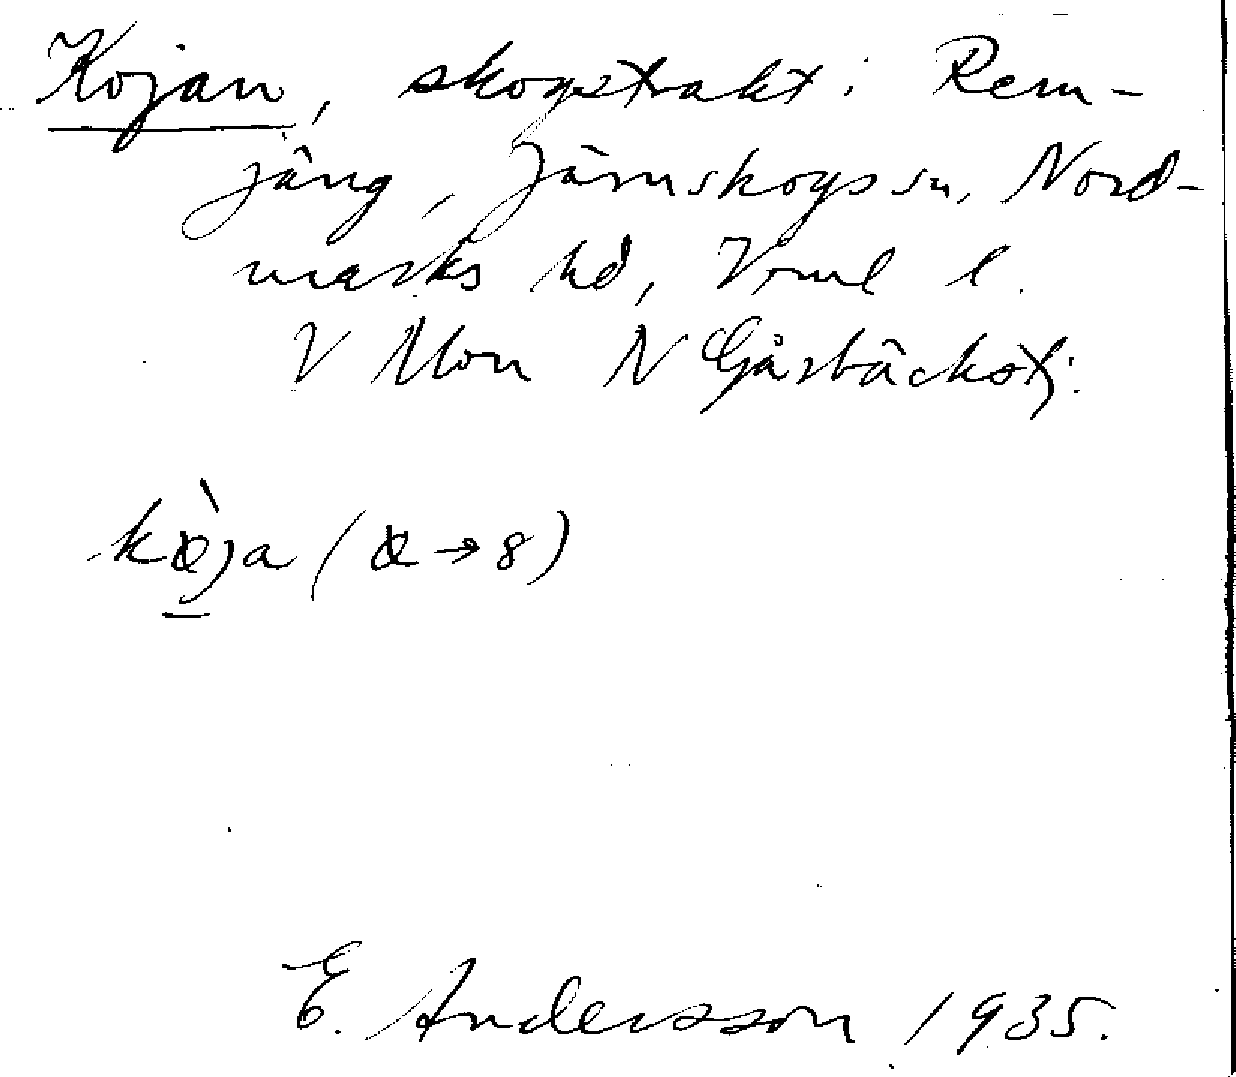 Kojan, skogstrakt i Rem-
jäng, Järnskogs sn, Nord-
marks hd, Vrml l.
V Mon N Gårsbäckstj.
(→8)
E. Andersson 1935.